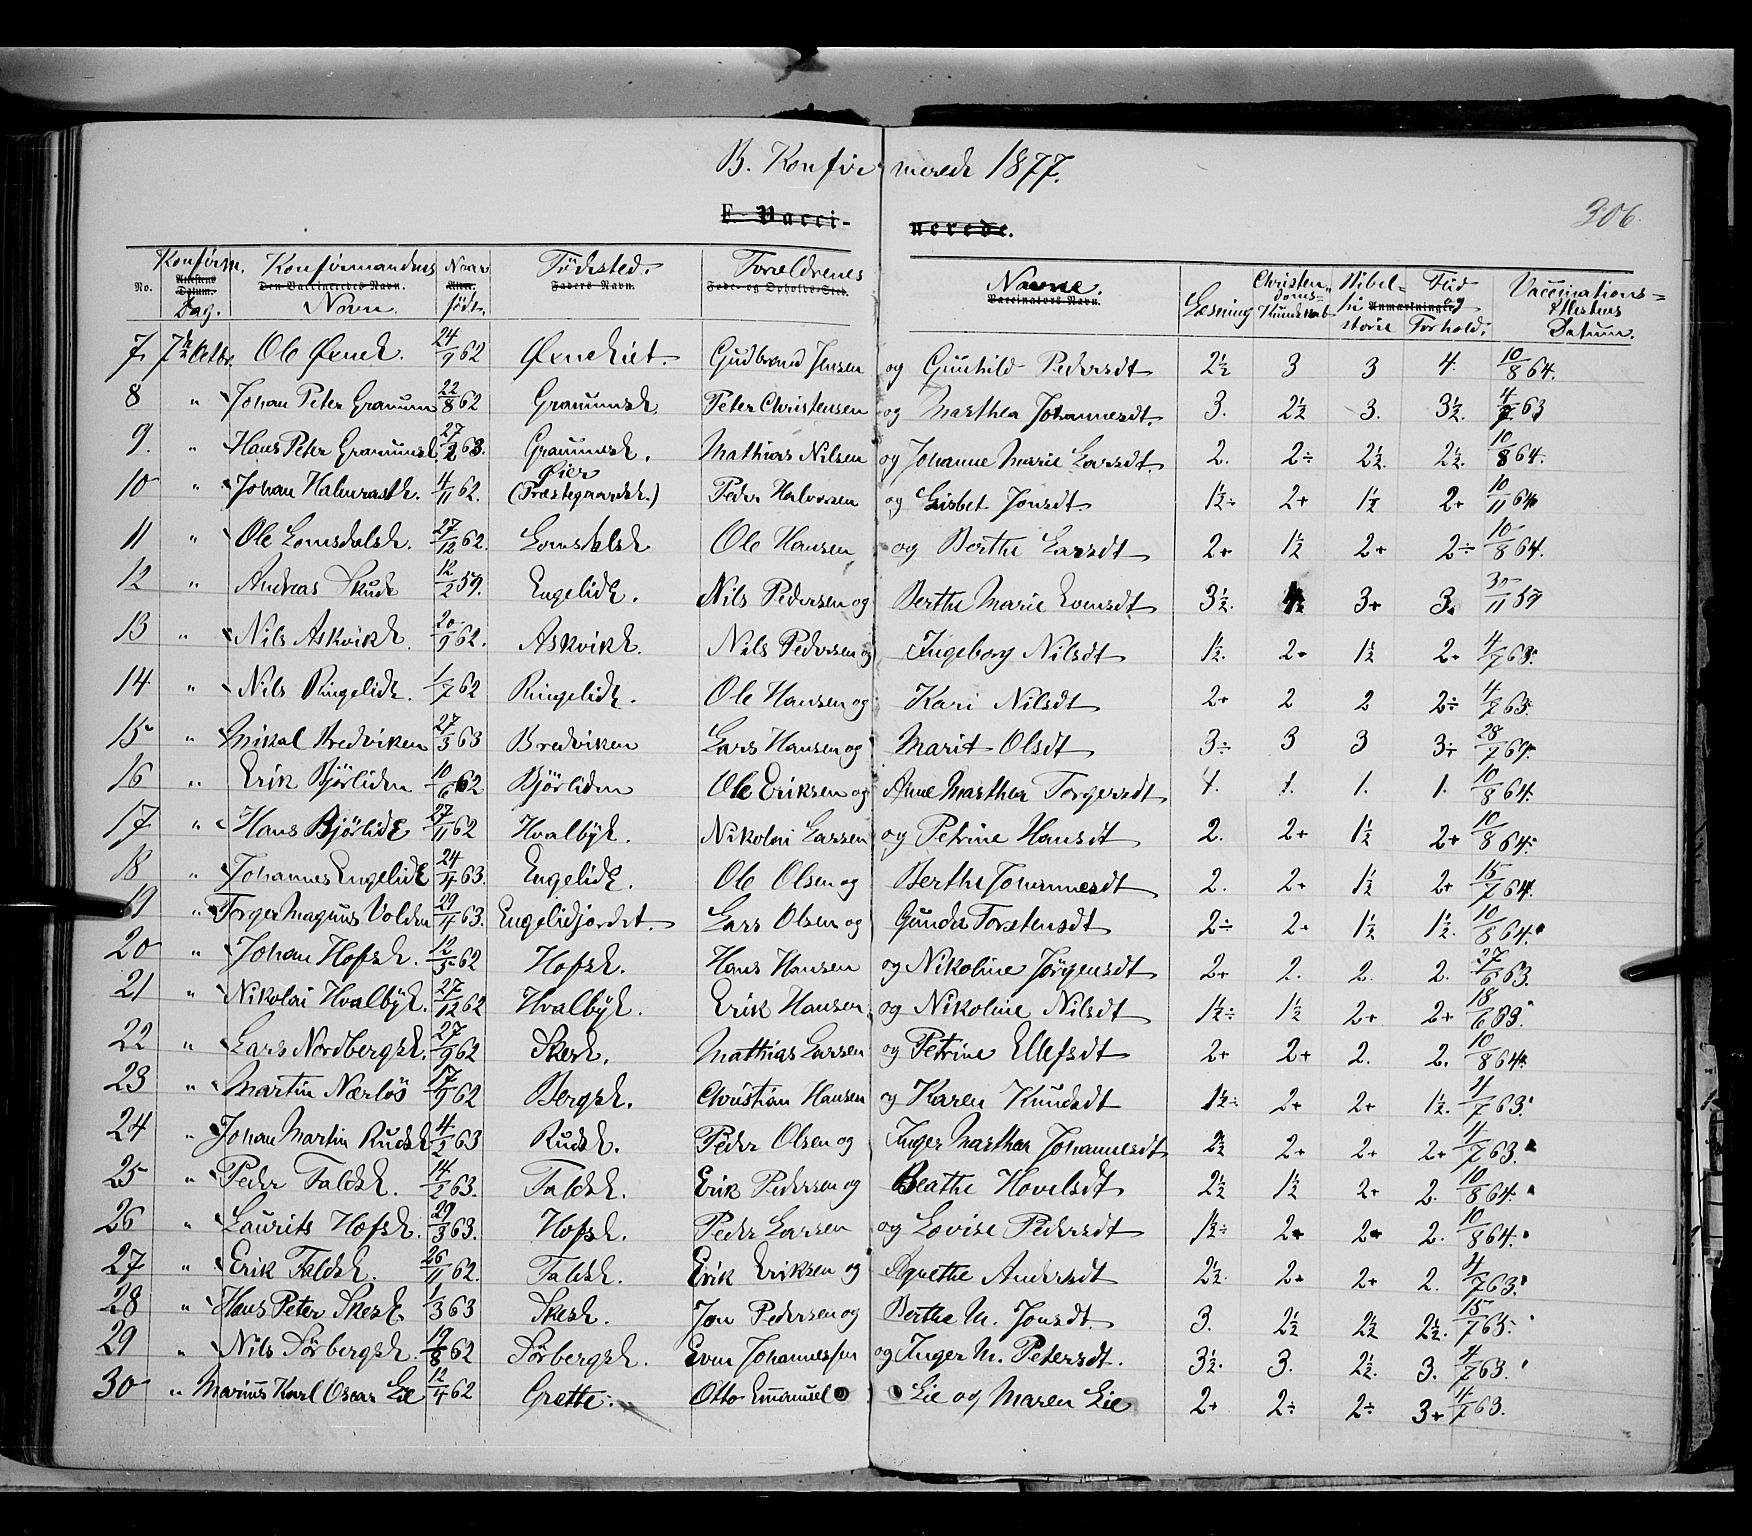 B. Konfirmerede 1877.
E. Vaccinerede.
306.
No. Konfirm. Dag. Konfirmandens Navn Naar født. Fødested. Forældrenes Navne. Læsning Christendoms-Kundskab Bibelhistorie Flid og Forhold. Vaccinations-Attestens Datum.
Attestens Datum. Den Vaccineredes Navn. Alder. Faders Navn. Føde- og Opholds-Sted. Vaccinators Navn. Anmærkninger
7 7de Octbr. Ole 24/9 62 Gudbrand Jensen og Gunhild Pedersdt 2½ 3 3 4. 10/8 64.
8 " Johan Peter 22/8 62 Peter Christensen og Marthea Johannesdt. 3. 2½ 3. 3½. 4/7 63
9. " Hans Peter 27/2 63. Mathias Nilsen og Johanne Marie Larsdt. 2. 2÷ 2½. 2½. 10/8 64.
10 " Johan 4/11 62. Øier (Præstegaardsk.) Peder Halvorsen og Lisbet Jonsdt 1½÷ 2+ 1½ 2+ 10/11 64
11 " Ole Lomsdalsk. 27/12 62. Lomsdalsk Ole Hansen og Berthe Larsdt 2+ 1½ 2+ 2÷ 10/8 64.
12 " Andreas Skude 12/2 59. Engelidk. Nils Pedersen og Berthe Marie Evensdt 3½. 3+ 3. 30/11 59
13 " Nils Askvikk. 20/9 62. Askvikk. Nils Pedersen og Ingeborg Nilsdt 1½. 2+ 1½ 2+ 4/7 63.
14 " Nils Ringelidk. 1/7 62 Ringelidk. Ole Hansen og Kari Nilsdt 2+ 2 2 2÷ 4/7 63.
15 " Mikal Bredviken 27/3 63 Bredviken Lars Hansen og Marit Olsdt 3÷ 3 3 3+ 28/7 69.
16 " Erik Bjørliden 10/6 62 Bjørliden Ole Eriksen og Anne Marthea Torgersdt 1. 1. 1. 1. 10/8 64.
17 " Hans Bjørlidk 27/11 62 Hvalbyk. Nikolai Larsen og Petrine Hansdt 2. 2+ 1½ 2+ 10/8 64.
18 " Johannes Engelidk 24/4 63. Engelidk. Ole Olsen og Berthe Johannesdt 2. 2+ 1½ 2+ 15/7 64.
19 " Torger Magnus Volden 29/4 63. Engelidjordet. Lars Olsen og Gunder Torstensdt 2÷ 2+ 1½ 1½. 10/8 64.
20 " Johan Hofsk. 12/5 62 Hofsk. Hans Hansen og Nikoline Jørgensdt 2+ 2. 2. 2. 27/6 63.
21 " Nikolai Hvalbyk. 27/12 62 Hvalbyk. Erik Hansen og Nikoline Nilsdt 1½÷ 1½ 2+ 2+ 18/6 63.
22 " Lars Nordbergsk. 27/9 62 Skesk. Mathias Larsen og Petrine Ellefsdt 2+ 2+ 2. 2. 10/8 64.
23 " Martin Nærløs 17/9 62 Bergsk. Christian Hansen og Karen Knudsdt 1½÷ 2+ 2+ 1½. 4/7 63.
24 " Johan Martin Rudsk 4/2 63 Rudsk. Peder Olsen og Inger Marthea Johannesdt 2½ 2+ 2+ 2+ 4/7 63.
25 " Peder Faldsk. 14/2 63. Faldsk. Erik Pedersen og Beathe Hovelsdt 2½ 1½ 2+ 2. 10/8 64.
26 " Laurits Hofsk. 29/3 63. Hofsk. Peder Larsen og Lovise Pedersdt 1½÷ 2+ 2+ 2. 10/8 64.
27 " Erik Faldsk. 26/11 62. Faldsk. Erik Eriksen og Agnethe Andersdt 2½. 2+ 2+ 2. 4/7 63.
28 " Hans Peter Skesk. 1/3 63 Skesk. Jon Pedersen og Berthe M. Jonsdt. 3. 2½ 2½ 2½. 15/7 63.
29 " Nils Sørbergsk. 19/8 62 Sørbergsk. Even Johannessen og Inger M. Petersdt. 3½. 3. 2½. 3. 4/7 63.
30 " Marinus Karl Oscar Lie 12/4 62 Grette. Otto Emanuel Lie og Maren Lie 2+ 2÷ 2÷ 3+ 4/7 63.